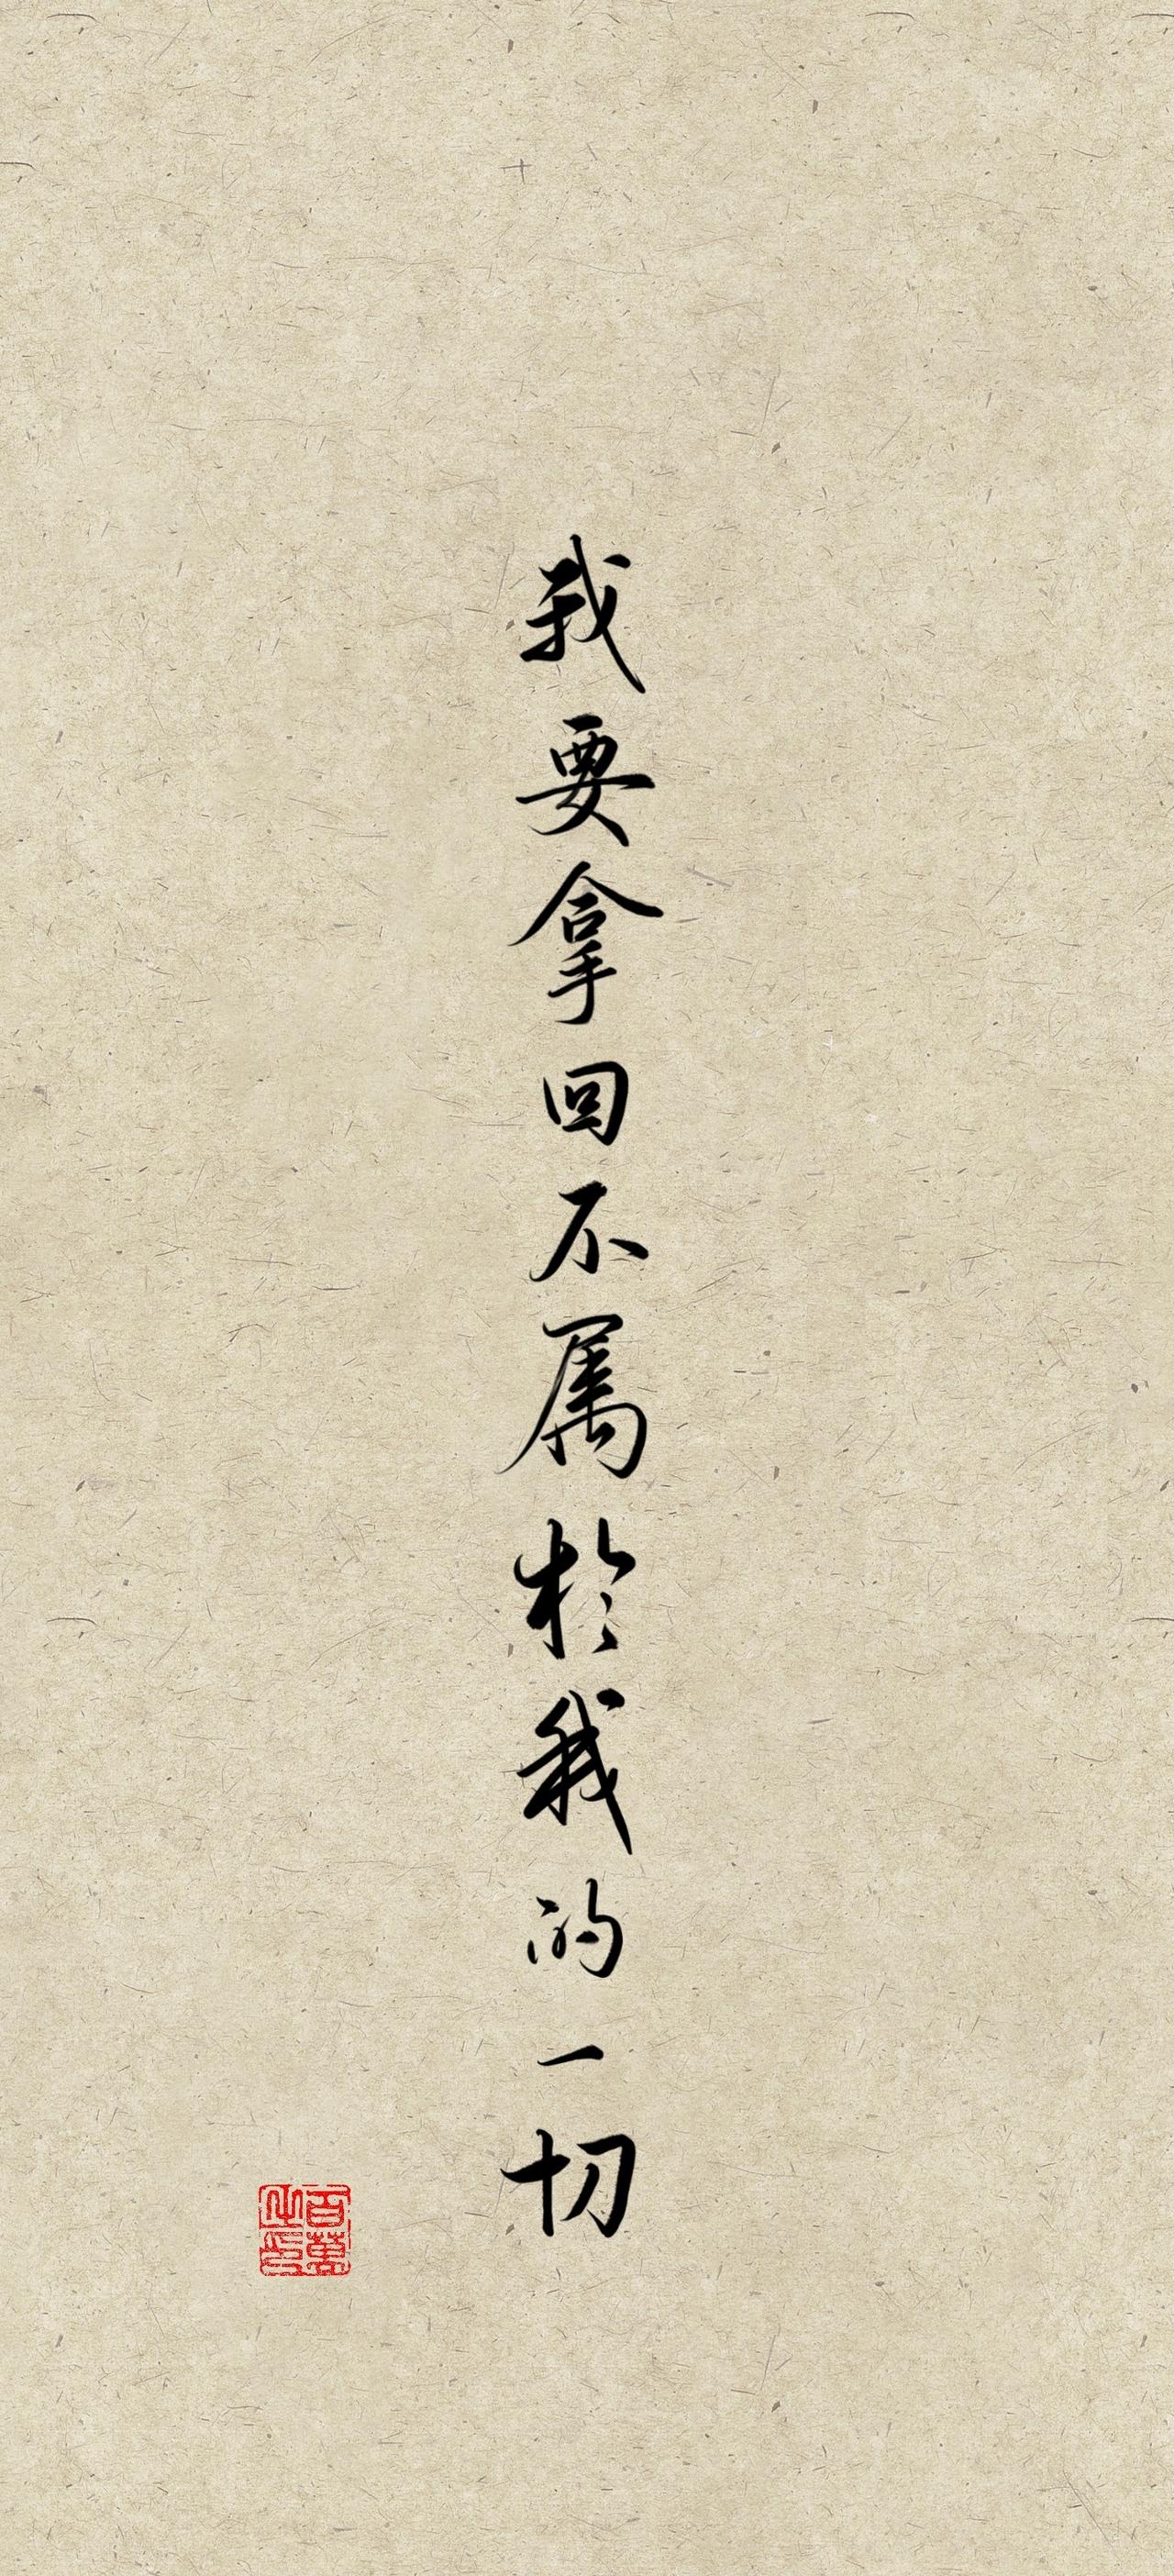 我要拿回不属於我的一切